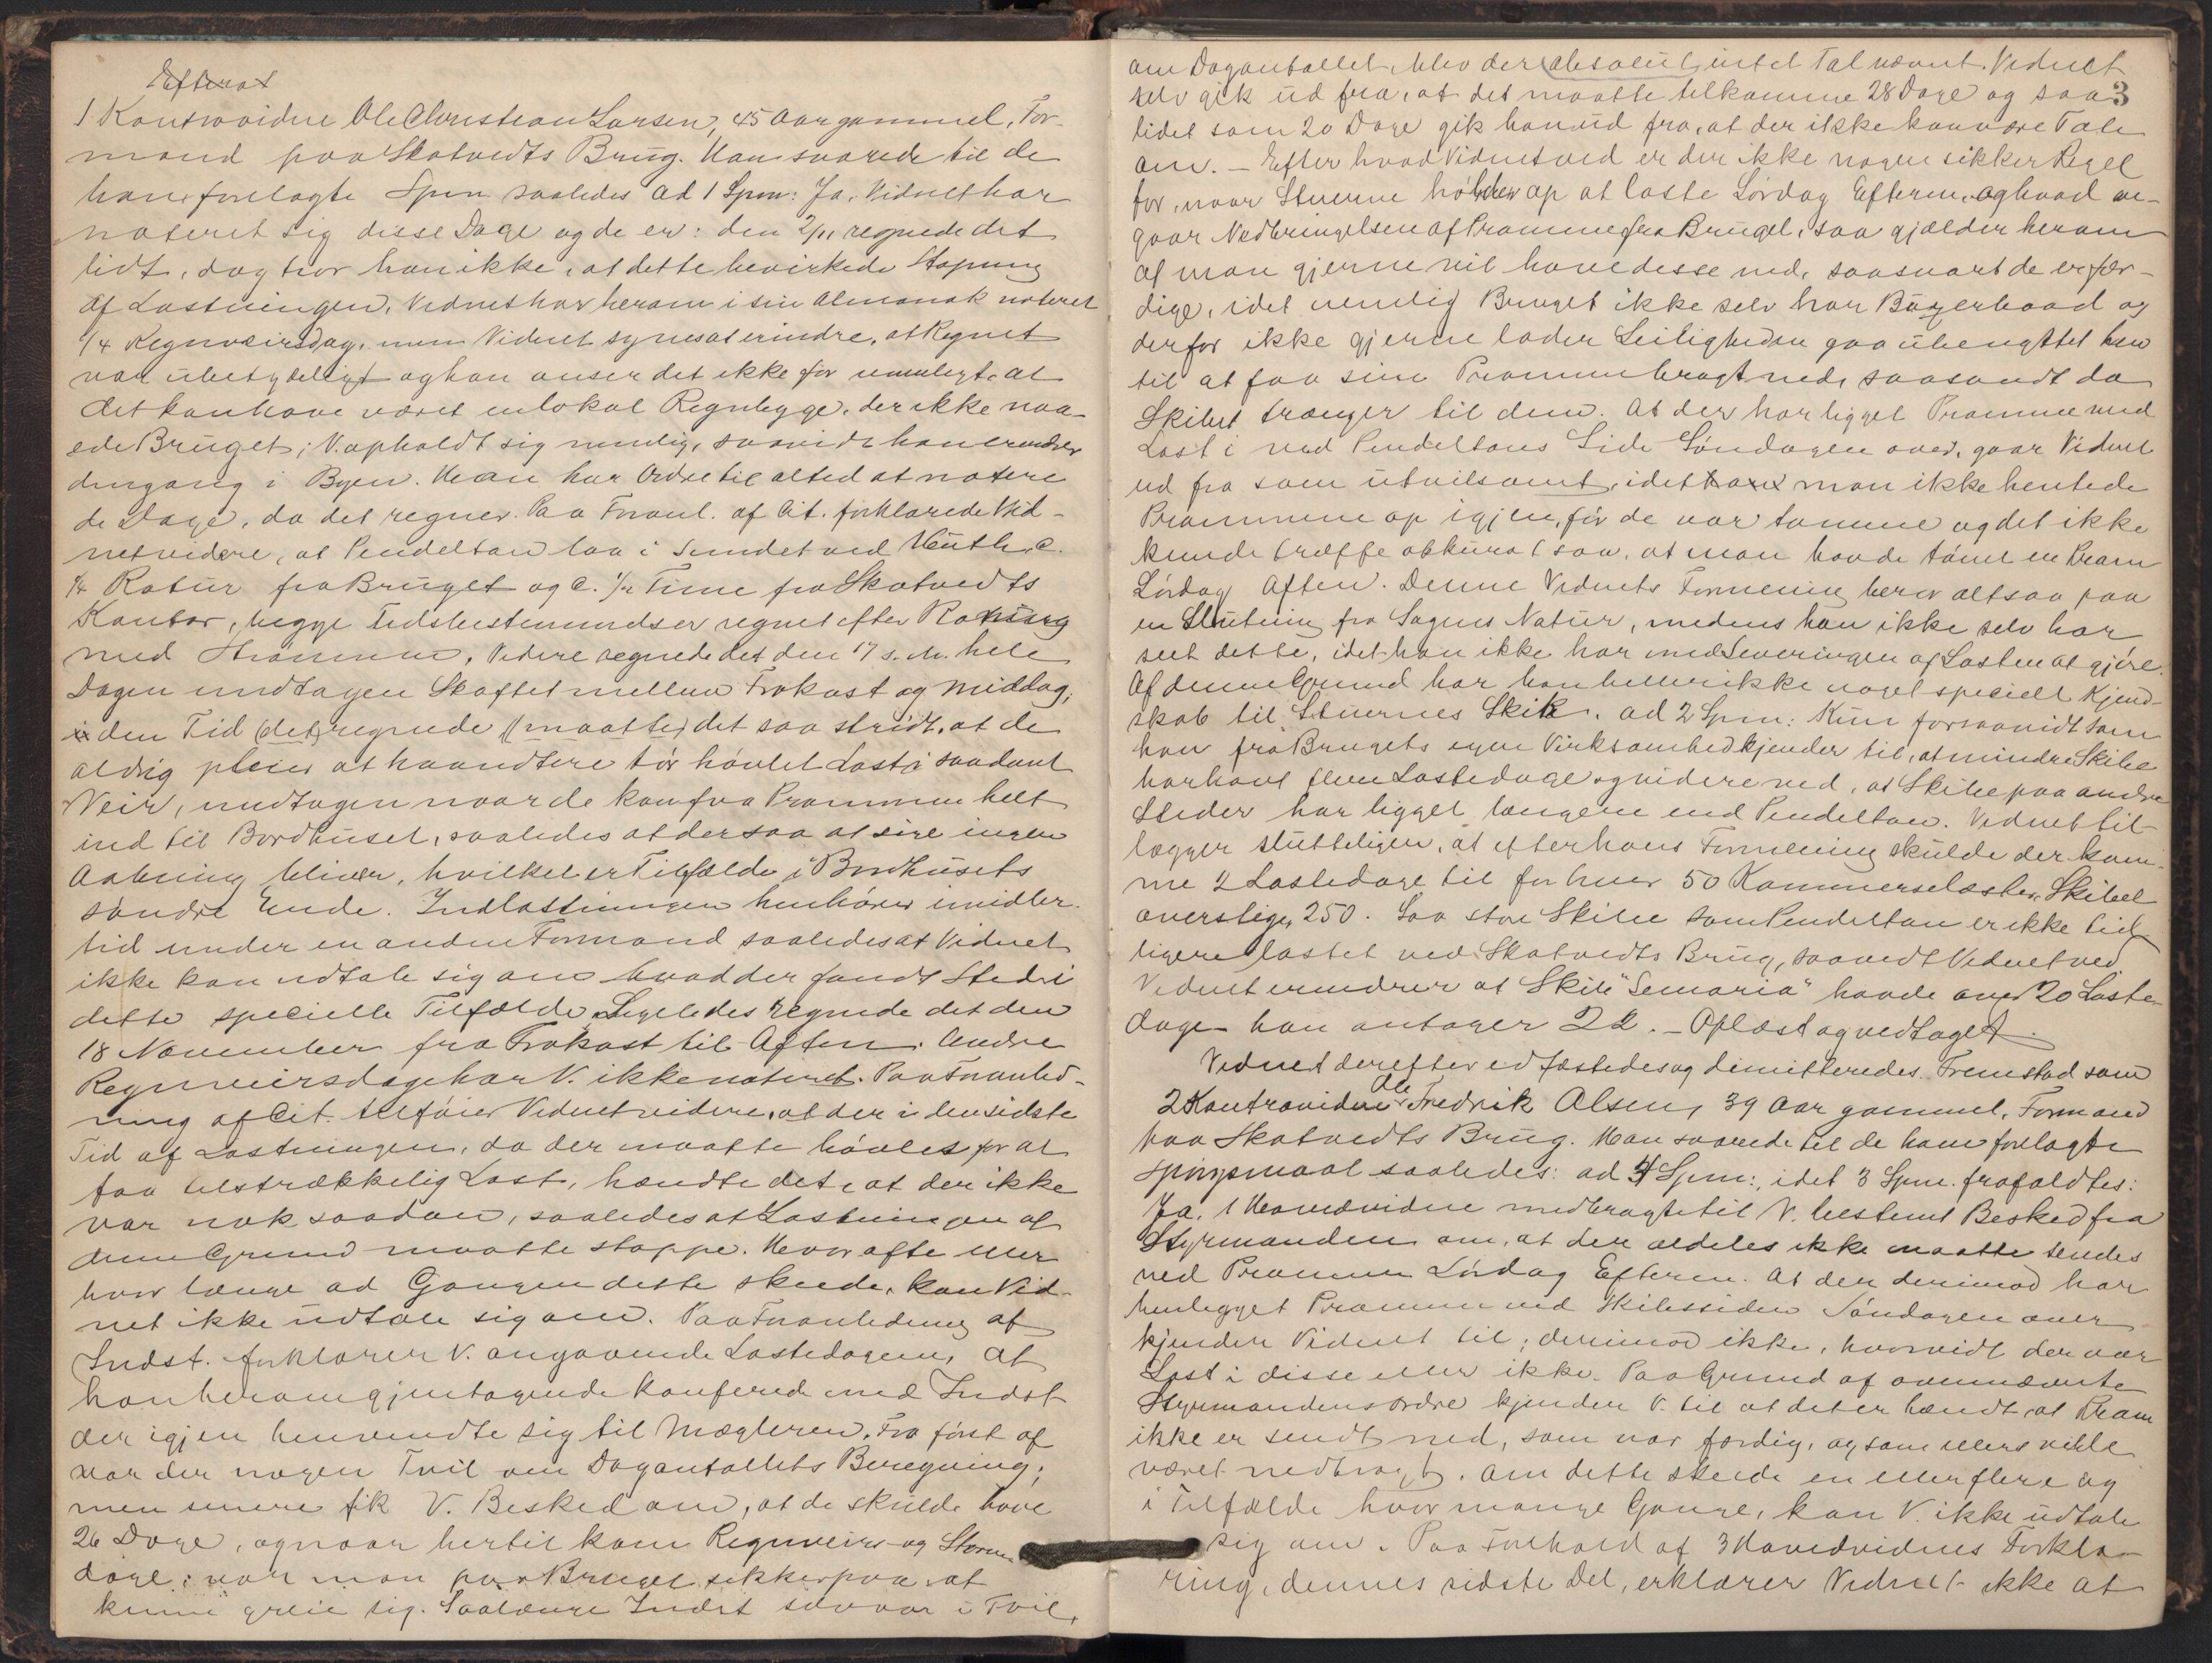 Efterat
1 Kontravidne Ole Christian Larsen, 45 Aar gammel, For-
mand paa Skotvedts Brug. Han svarede til de
ham forelagte Spm saaledes ad 1 Spm: Ja. Vidnet har
noteret sig disse Dage og de er: den 2/11 regnede det
lidt, dog tror han ikke, at dette bevirkede Stopning
af Lastningen, Vidnet har herom i sin Almanak noteret
1/4 Regnveirsdag, men Vidnet synes at erindre, at Regnet
var ubetydeligt og han anser det ikke for umuligt, at
det kan have været en lokal Regnbyge, der ikke naa-
ede Bruget; V. opholdt sig nemlig, saavidt han erindrer
dengang i Byen. Han har Ordre til altid at notere
de Dage, da det regner. Paa Foranl. af Cit. forklarede Vid-
net videre, at Pendelton laa i Sundet ved c.
1/4 Rotur fra Bruget og c. 1/2 Time fra Skotvedts
Kontor, begge Tidsbestemmelser regnet efter Roning
med Strømmen. Videre regnede det den 17 s. M. hele
Dagen undtagen Skaftet mellem Frokost og Middag;
i den Tid (det) regnede (maatte) det saa stridt, at de
aldrig pleier at haandtere tør høvlet Last i saadant
Veir, undtagen naar de kan faa Prammen helt
ind til Bordhuset, saaledes at der saa at sige ingen
Aabning bliver, hvilket er Tilfælde i Bordhusets
søndre Ende. Indlastningen henhører imidler-
tid under en anden Formand saaledes at Vidnet
ikke kan udtale sig om hvad der fandt Sted i
dette specielle Tilfælde. Ligeledes regnede det den
18 November fra Frokost til Aften. Andre
Regnveirsdage har V. ikke noteret. Paa Foranled-
ning af Cit. tilføier Vidnet videre, at der i den sidste
Tid af Lastningen, da der maatte høvles for at
faa tilstrækkelig Last, hændte det, at der ikke
var nok saadan, saaledes at Lastningen af
denne Grund maatte stoppe. Hvor ofte eller
hvor længe ad Gangen dette skede, kan Vid-
net ikke udtale sig om. Paa Foranledning af
Indst. forklarer V. angaaende Lastedagene, at
han herom gjentagende konfererede med Indst
der igjen henvendte sig til Mægleren. Fra først af
var der nogen Tvil om Dagantallets Beregning;
men senere fik V. Besked om, at de skulde have
26 Dage, og naar hertil kom Regnveirs- og Storm-
dage, var man paa Bruget sikker paa at
kunne greie sig. Saalænge Indst selv var i Tvil,
om Dagantallet, blev der (absolut) intet Tal nævnt. Vidnet
selv gik ud fra, at det maatte tilkomme 28 Dage og saa 3
lidet som 20 Dage gik han ud fra, at der ikke kan være Tale
om. – Efter hvad Vidnet ved er der ikke nogen sikker Regel
for, naar Stuerne holder op at laste Lørdag Efterm. og hvad an-
gaar Nedbringelsen af Prammene fra Bruget, saa gjælder herom
at man gjerne vil have disse ned, saasnart de er fær-
dige, idet nemlig Bruget ikke selv har Bugserbaad og
derfor ikke gjerne lader Leiligheden gaa ubenyttet hen
til at faa sine Pramme bragt ned, saasandt da
Skibet trænger til dem. At der har ligget Pramme med
Last i ved Pendeltons Side Søndagen over, gaar Vidnet
ud fra som utvilsomt, idet man ikke hentede
Prammene op igjen, før de var tomme og det ikke
kunde træffe akkurat saa, at man havde tømt en Pram
Lørdag Aften. Denne Vidnets Formening beror altsaa paa
en Slutning fra Sagens Natur, medens han ikke selv har
seet dette, idet han ikke har med Leveringen af Lasten at gjøre.
Af denne Grund har han heller ikke noget specielt Kjend-
skab til Stuernes Skik. ad 2 Spm: Kun forsaavidt som
han fra Brugets egen Virksomhed kjender til, at mindre Skibe
har havt flere Lastedage og videre ved, at Skibe paa andre
Steder har ligget længere end Pendelton. Vidnet til-
lægger sluttelig, at efter hans Formening skulde der kom-
me 2 Lastedage til for hver 50 Kommerselæster, Skibet
overstiger 250. Saa store Skibe som Pendelton er ikke tid-
ligere lastet ved Skotvedts Brug, saavidt Vidnet ved
Vidnet erindrer at Skib "Semaria" havde over 20 Laste-
dage han antager 22. – Oplæst og vedtaget.
Vidnet derefter edfæstedes og dimitteredes. Fremstod som
2 Kontravidne Ole Fredrik Olsen, 39 Aar gammel, Formand
paa Skotvedts Brug. Han svarede til de ham forelagte
Spørgsmaal saaledes: ad 4 Spm:, idet 3 Spm. frafaldtes:
Ja. 1 Hovedvidne medbragte til V. bestemt Besked fra
Styrmanden om, at der aldeles ikke maatte sendes
ned Pramme Lørdag Efterm. At der derimod har
henligget Pramme ved Skibssiden Søndagen over
kjender Vidnet til; derimod ikke, hvorvidt der var
Last i disse eller ikke. Paa Grund af ovennævnte
Styrmandens Ordre kjender V. til at det er hændt, at Pram
ikke er sendt ned, som var færdig, og som ellers vilde
været nedbragt. Om dette skede en eller flere og
i Tilfælde hvor mange Gange, kan V. ikke udtale
sig om. Paa Forehold af 3 Hovedvidnes Forkla-
ring, dennes sidste Del, erklærer Vidnet ikke at